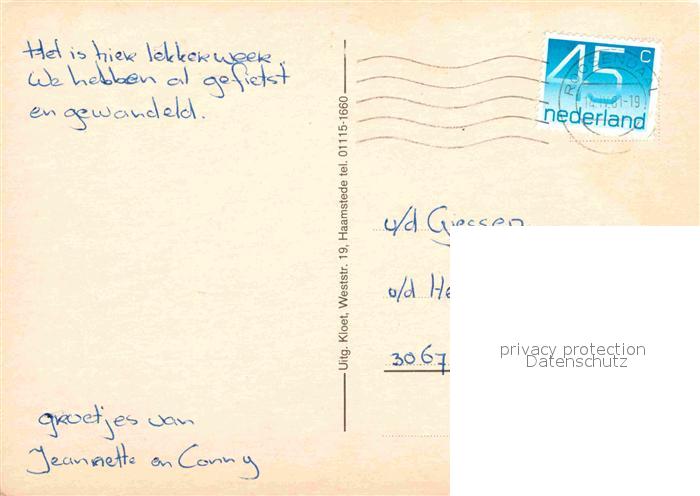 Het is hier lekker weer.
We hebben al gefietst
en gewandeld.
groetjes van
Jeannette en Conny
Uitg. Kloet, Weststr. 19, Haamstede tel. 01115-1660
45 c
nederland
ROOSENDAAL
14.IV.81-19
v/d Giessen
o/d He
3067
privacy protection
Datenschutz